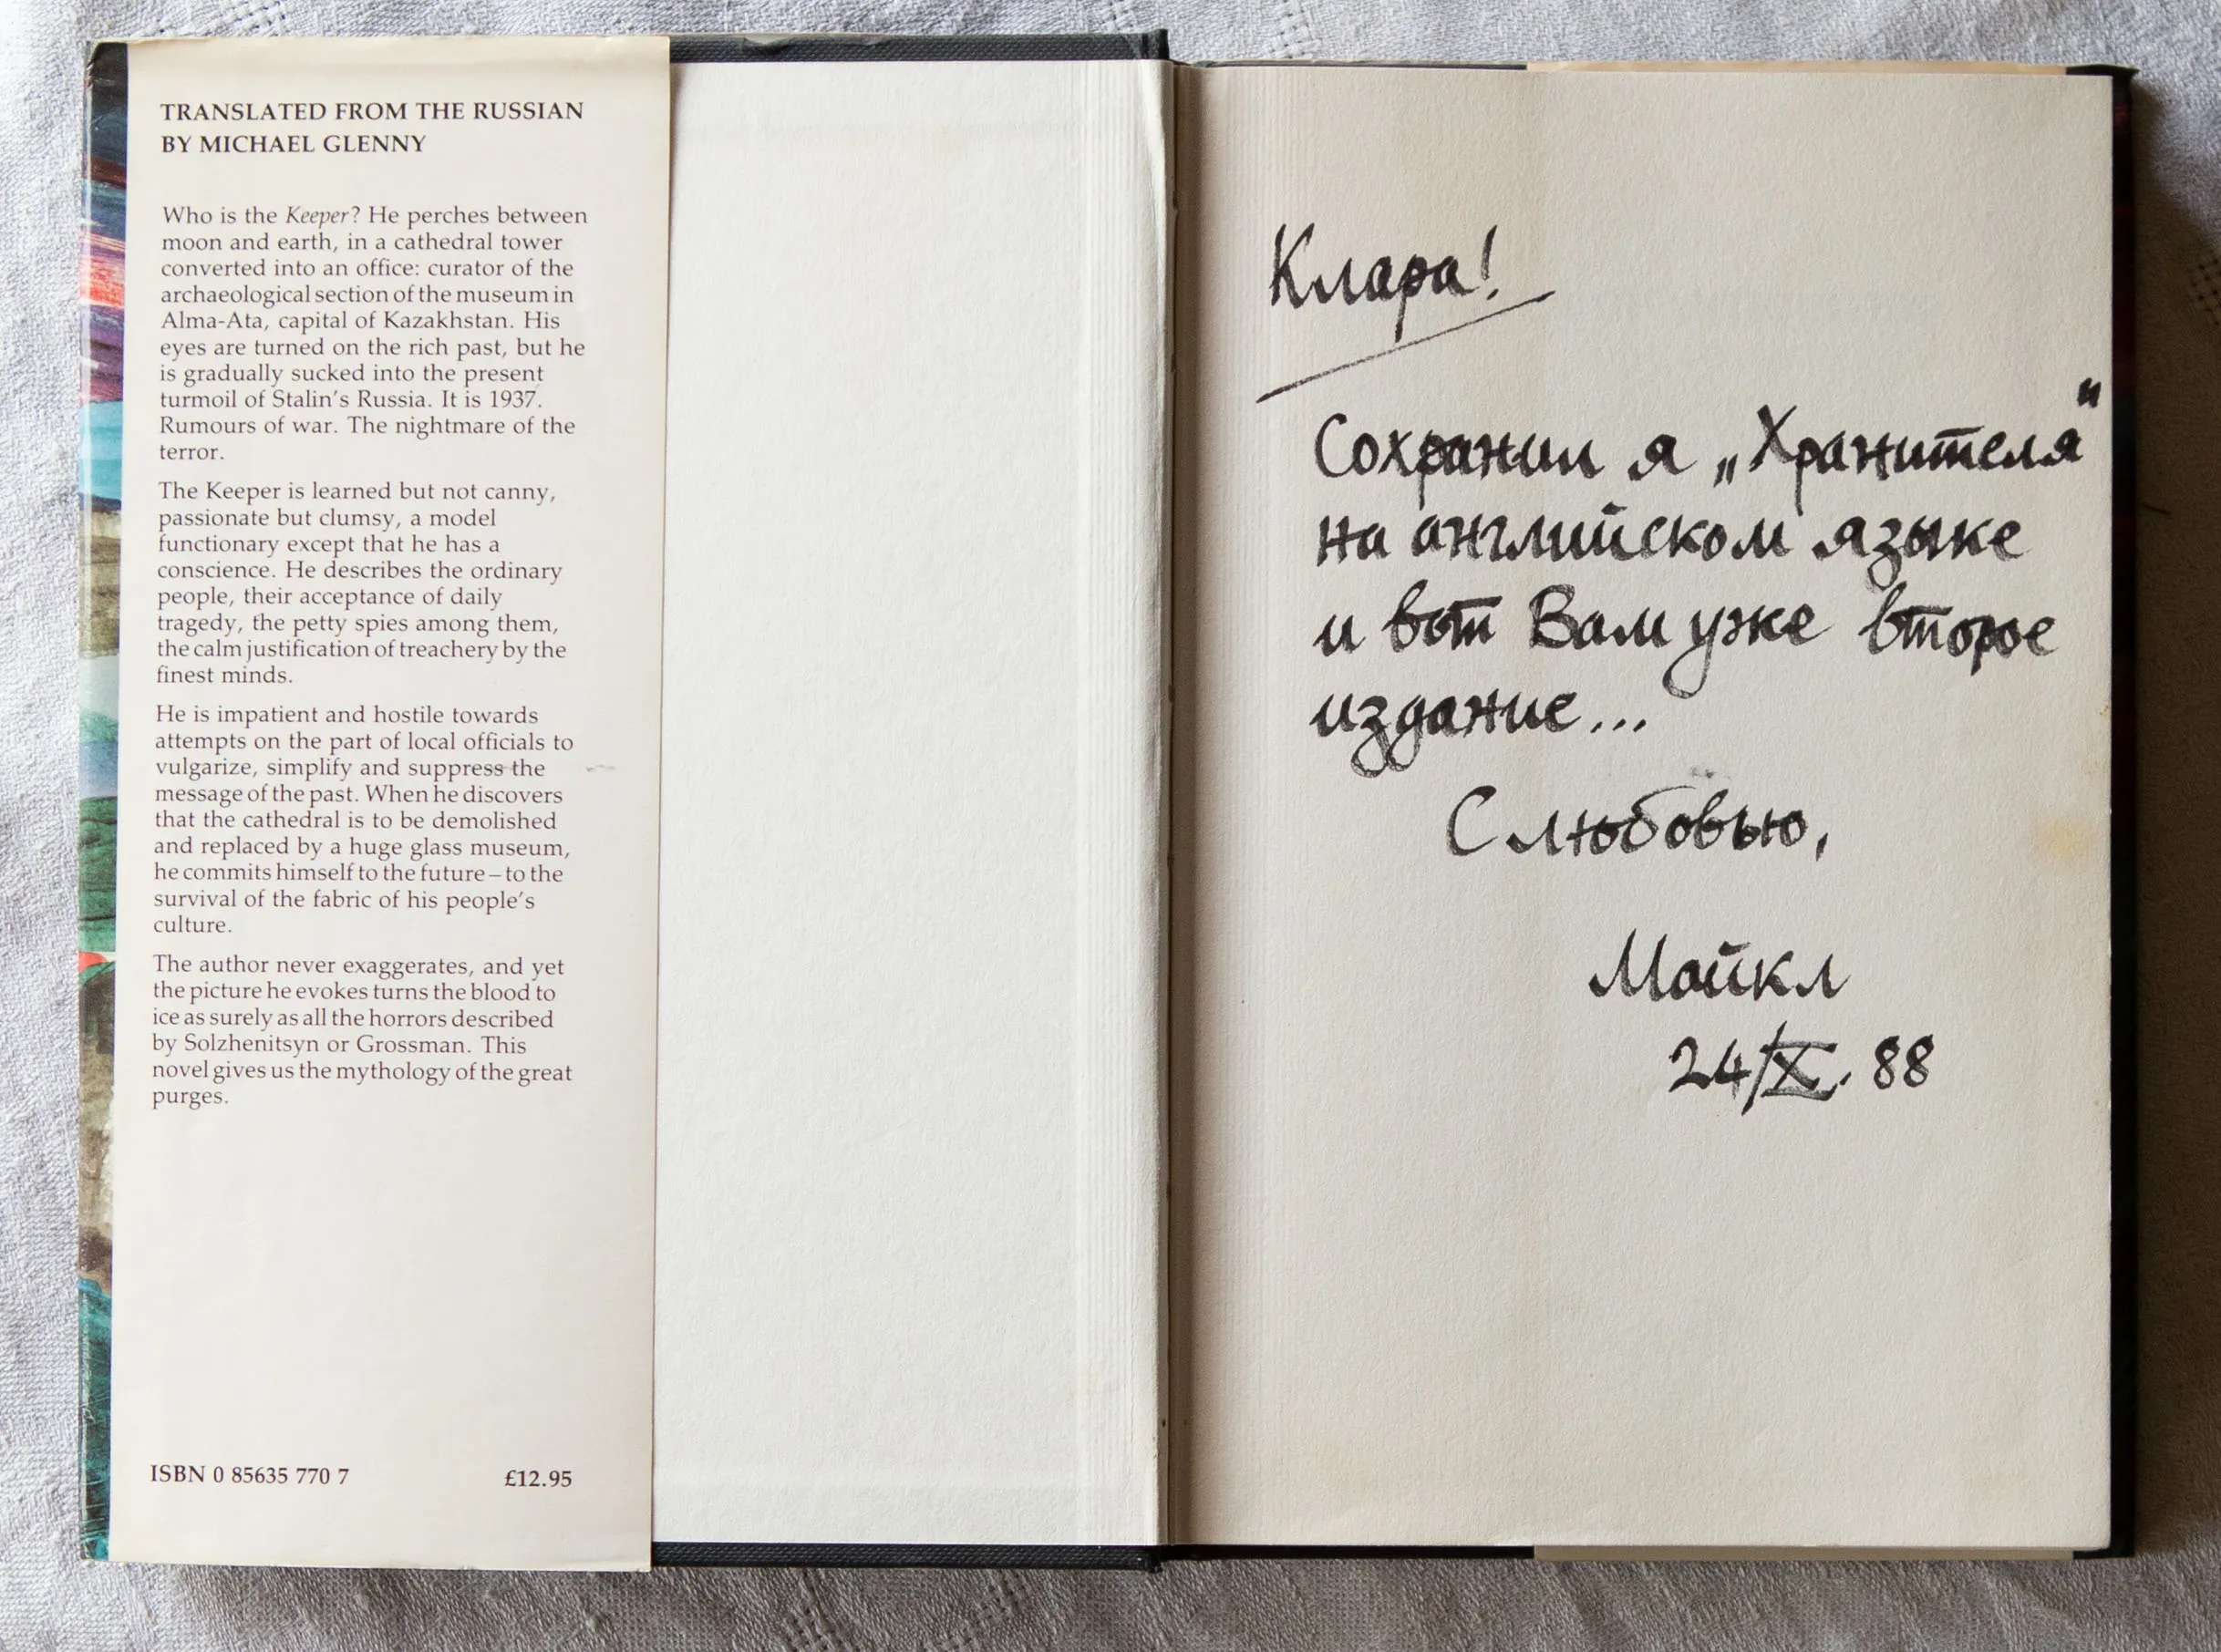 TRANSLATED FROM THE RUSSIAN
BY MICHAEL GLENNY
Who is the Keeper? He perches between
moon and earth, in a cathedral tower
converted into an office: curator of the
archaeological section of the museum in
Alma-Ata, capital of Kazakhstan. His
eyes are turned on the rich past, but he
is gradually sucked into the present
turmoil of Stalin's Russia. It is 1937.
Rumours of war. The nightmare of the
terror.
The Keeper is learned but not canny,
passionate but clumsy, a model
functionary except that he has a
conscience. He describes the ordinary
people, their acceptance of daily
tragedy, the petty spies among them,
the calm justification of treachery by the
finest minds.
He is impatient and hostile towards
attempts on the part of local officials to
vulgarize, simplify and suppress the
message of the past. When he discovers
that the cathedral is to be demolished
and replaced by a huge glass museum,
he commits himself to the future – to the
survival of the fabric of his people's
culture.
The author never exaggerates, and yet
the picture he evokes turns the blood to
ice as surely as all the horrors described
by Solzhenitsyn or Grossman. This
novel gives us the mythology of the great
purges.
ISBN 0 85635 770 7 £12.95
Клара!
Сохранил я „Хранителя"
на английском языке
и вот Вам уже второе
издание...
С любовью,
Майкл
24/X. 88